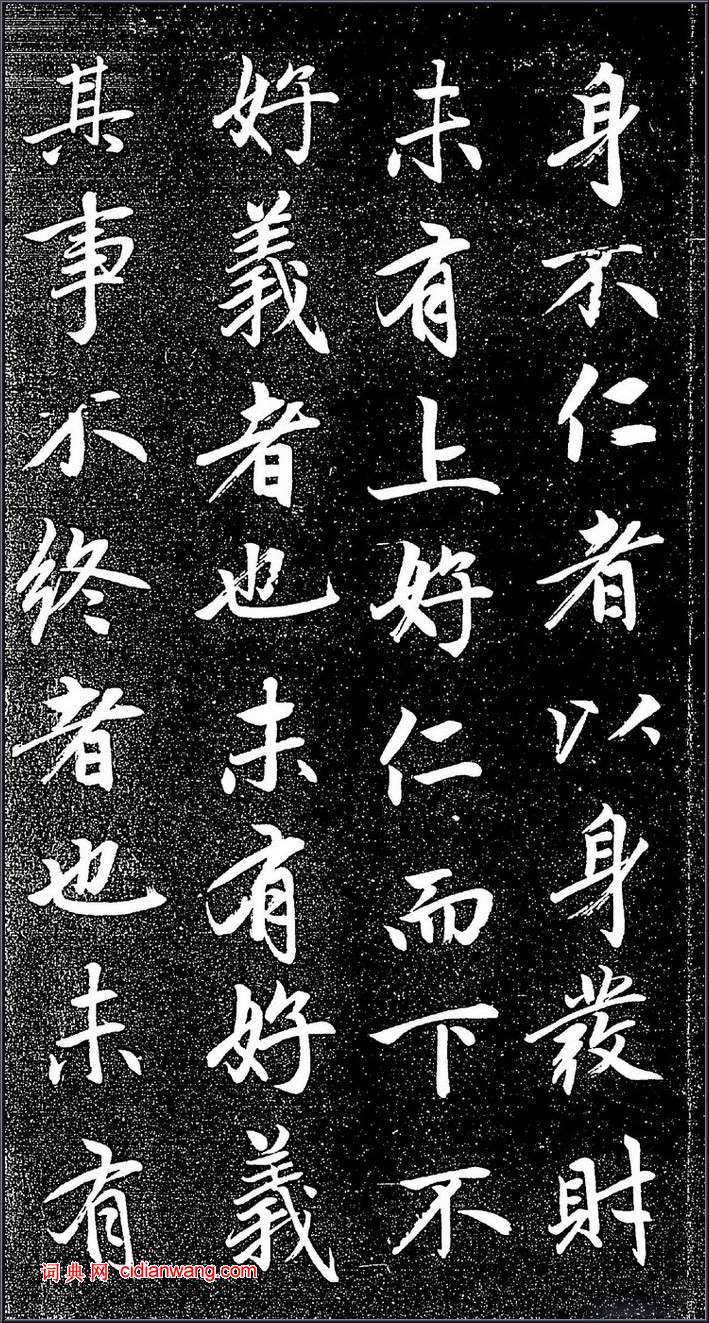 身不仁者以身發財
未有上好仁而下不
好義者也未有好義
其事不终者也未有
词典网 cidianwang.com